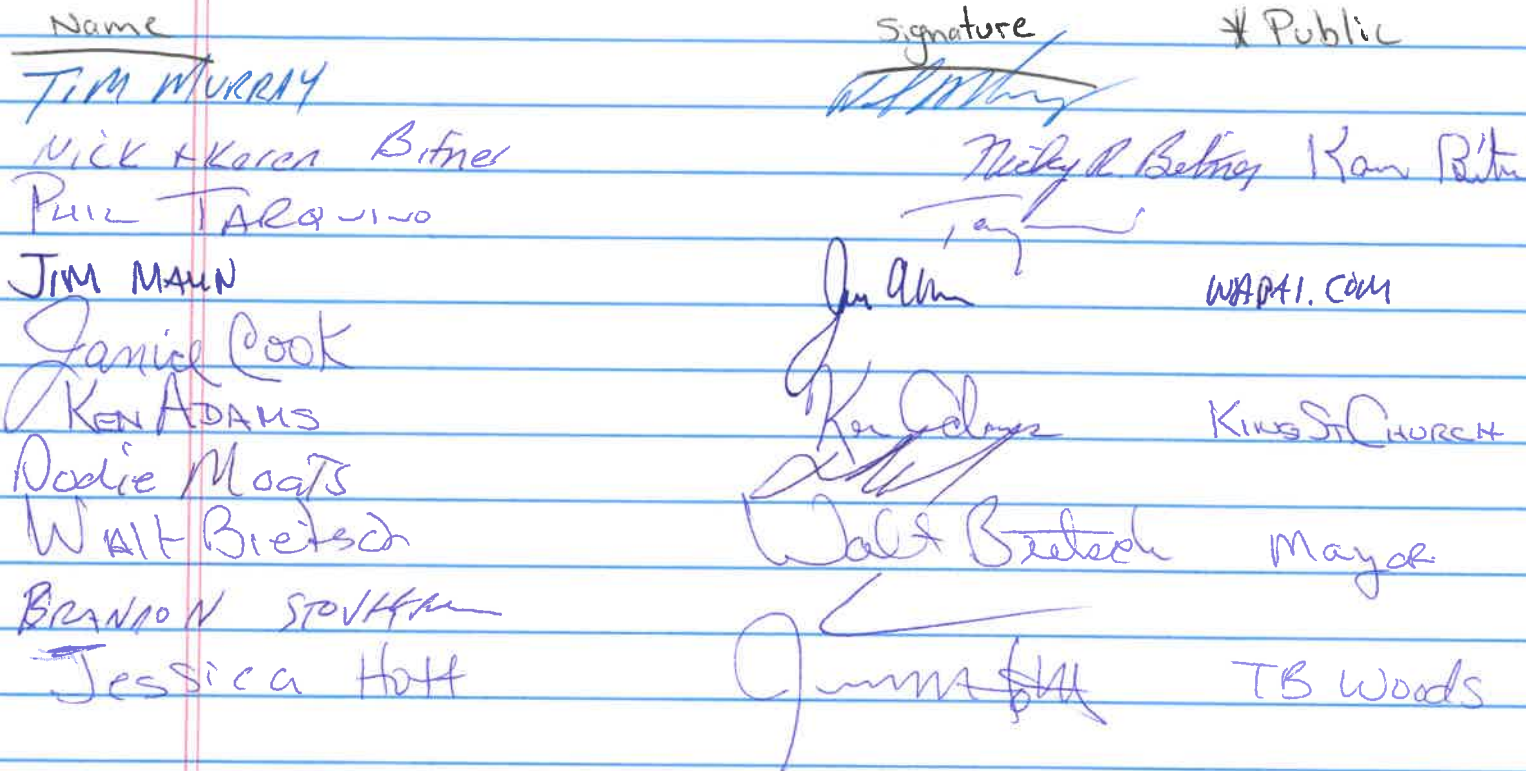 Name Signature * Public
TIM MURRAY
Nick + Karen Bitner Nicky R. Bitner Karen Bitn
PHIL TARQUINO
JIM MAUN
Janice Cook
KEN ADAMS Ken Adams KING ST CHURCH
Dodie Moats
WAlt Bietsch Walt Bietsch Mayor
BRANDON
Jessica Hott TB Woods